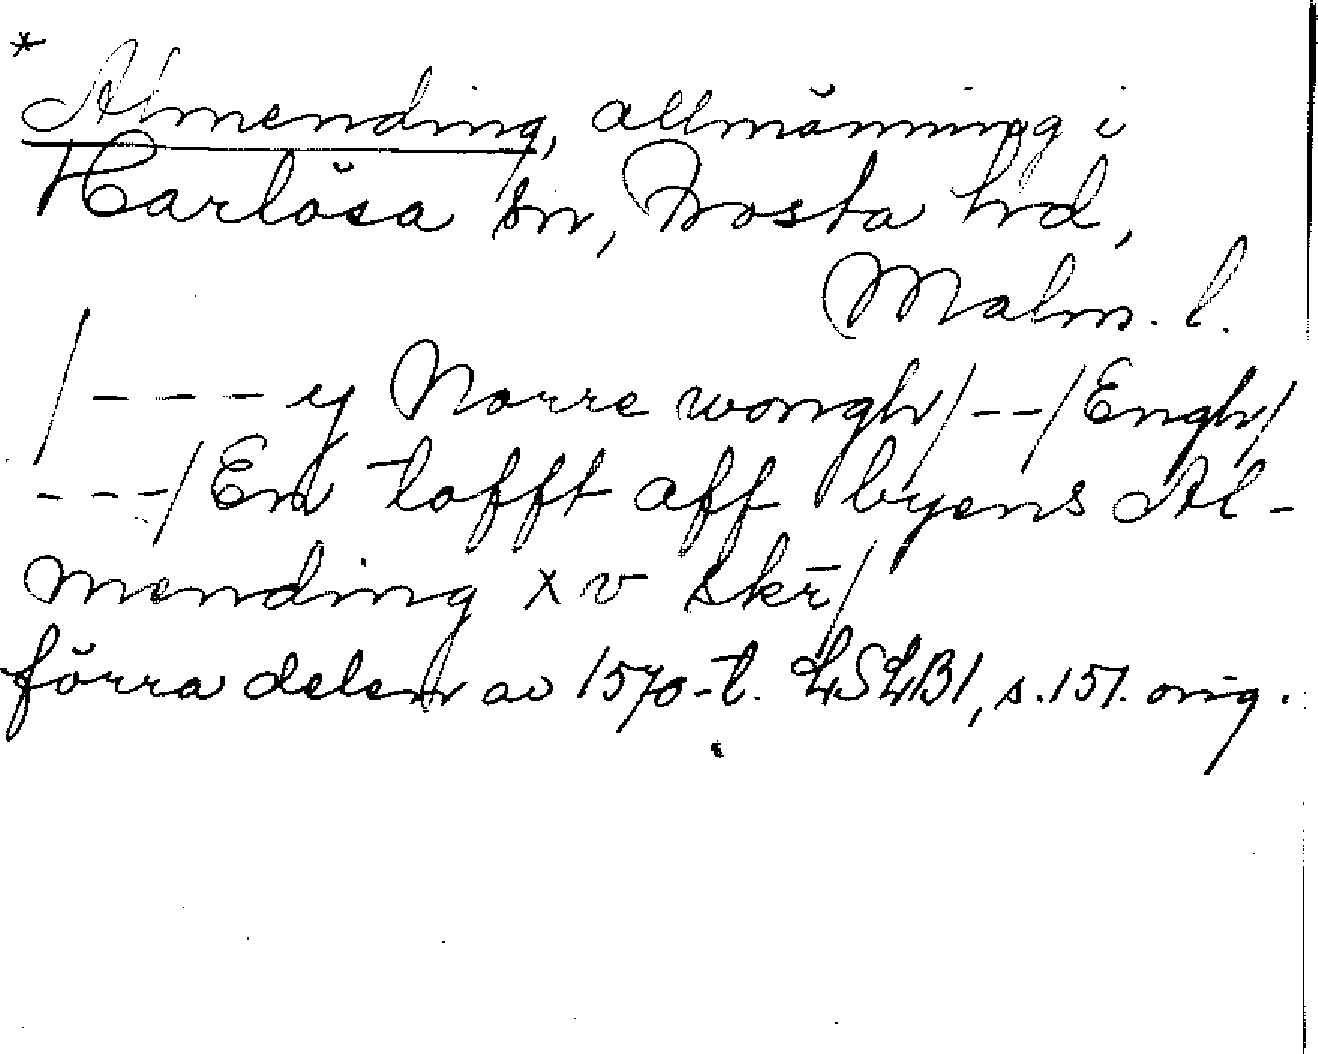 *
Almending, allmänning i
Harlösa sn, Frosta hrd,
Malm. l.
/---y Norre wongh/--/Engh/
---/En tofft aff byens Al-
mending x v skr̄/
förra delen av 1570-t. LSLB1, s.151. orig.